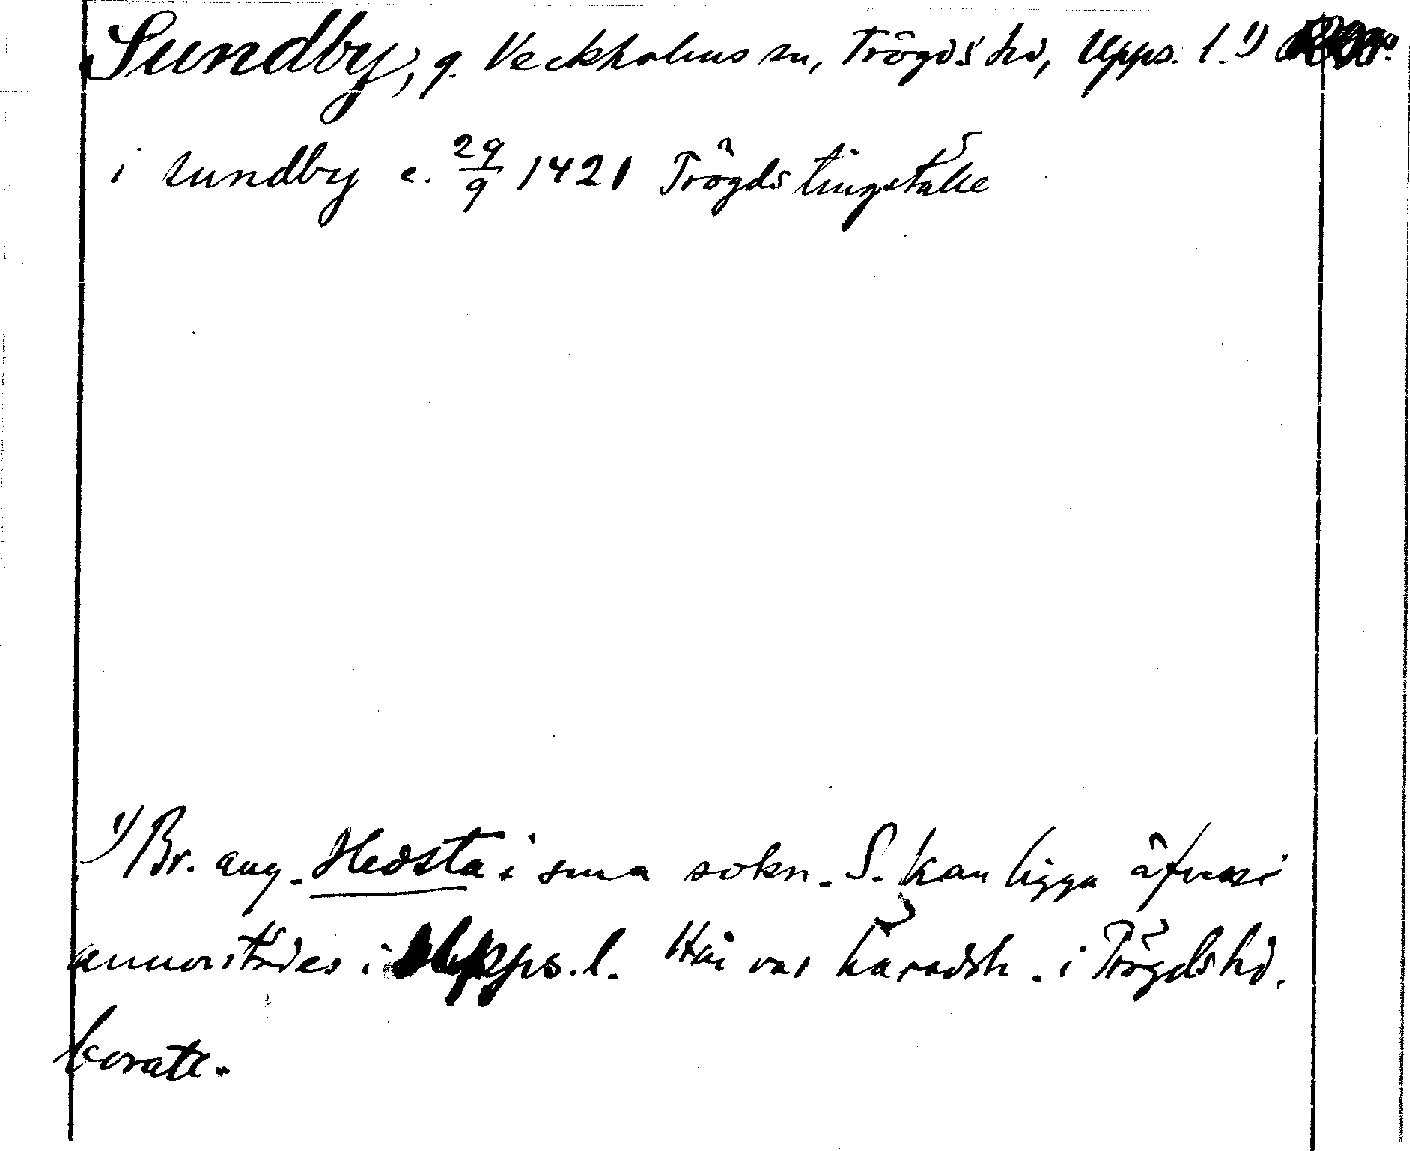 Sundby, g. Veckholms sn, Trögds hd, Upps. l. 1)
i sundby c. 29/9 1421 Trögds tingställe
1) Br. ang. Hedsta i sma sokn. S. kan ligga äfven i
annorstädes i Upps. l. Här var häradsh. i Trögds hd.
borate.